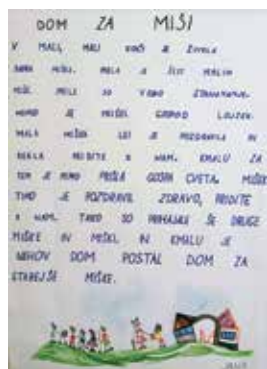 DOM ZA MIŠI
V MALI, MALI HOČI JE ŽIVELA
MIŠKA. IMELA JE ŠEST MALIH
MIŠK. IMELE SO
MIMO JE PRIŠEL GOSPOD
MALA MIŠKA JE POZDRAVILA IN
REKLA PRIDITE K NAM. KMALU ZA
TEM JE MIMO PRIŠLA GOSPA CVETA. MIŠEK
TIMO JE POZDRAVIL ZDRAVO, PRIDITE
K NAM. TAKO SO PRIHAJALE ŠE DRUGE
MIŠKE IN MIŠKI, IN KMALU JE
NEHOV DOM POSTAL DOM ZA
STAREJŠE MIŠKE.